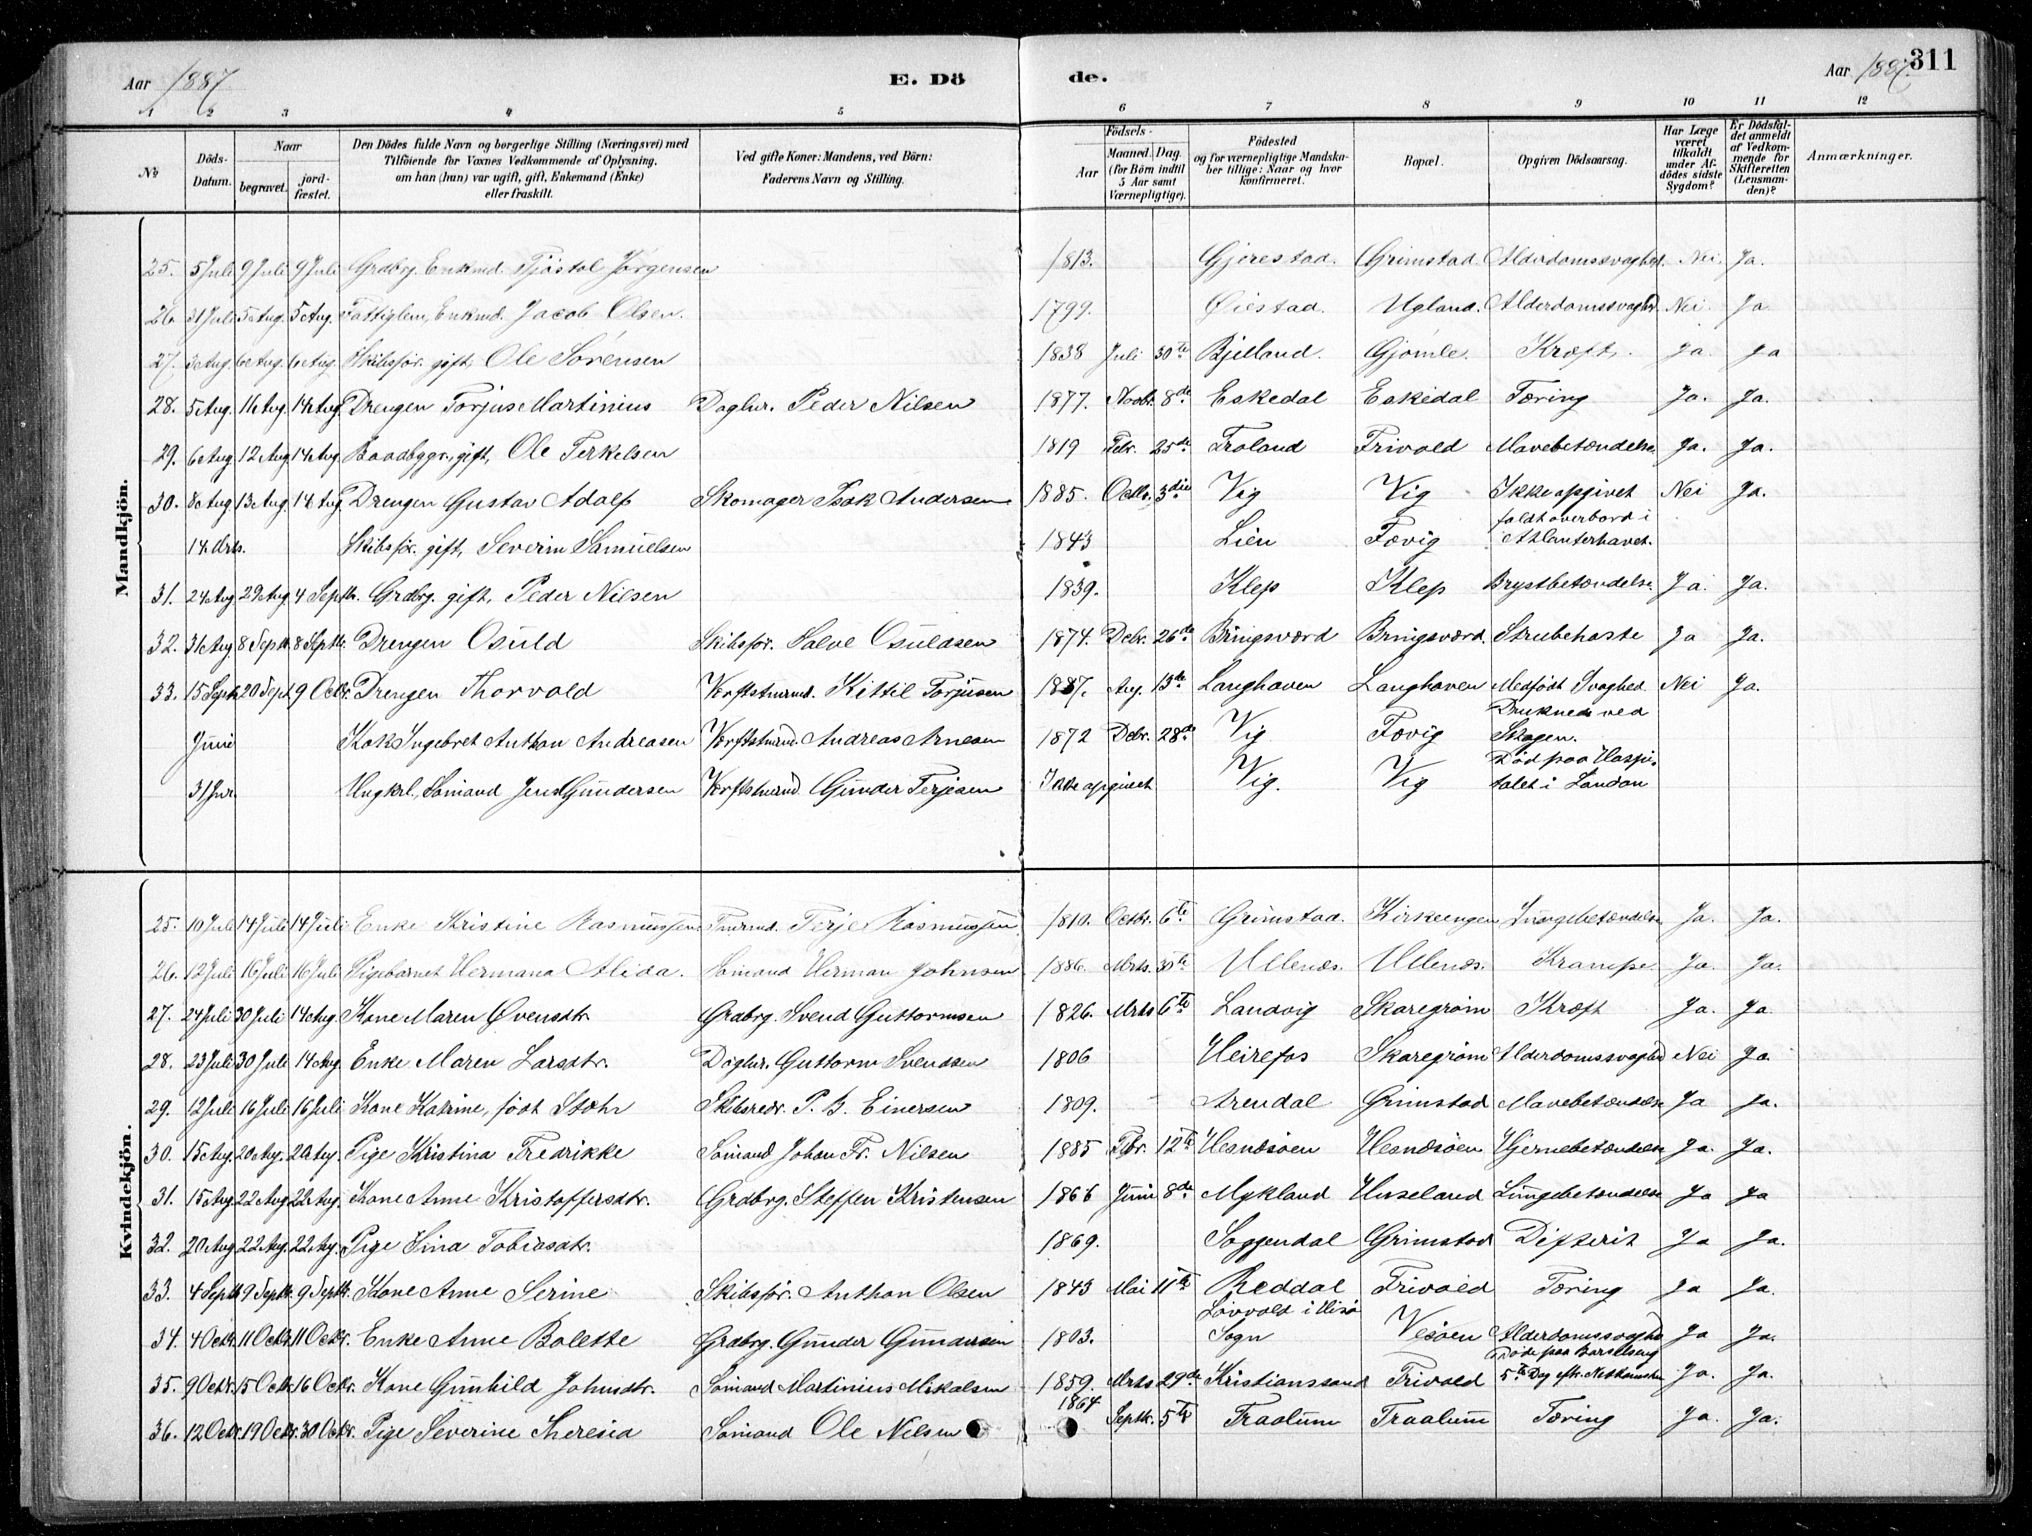 Aar 1887. E. Dö de. Aar 1887. 311
1 2 3 4 5 6 7 8 9 10 11 12
№ | Döds-Datum. | Naar begravet. | jord-fæstet. | Den Dödes fulde Navn og borgerlige Stilling (Næringsvei) med Tilföiende for Voxnes Vedkommende af Oplysning, om han (hun) var ugift, gift, Enkemand (Enke) eller fraskilt. | Ved gifte Koner: Mandens, ved Börn: Faderens Navn og Stilling. | Födsels- Aar | Maaned. | Dag. (for Börn indtil 5 Aar samt Værnepligtige). | Födested og for værnepligtige Mandskaber tillige: Naar og hvor konfirmeret. | Bopæl. | Opgiven Dödsaarsag. | Har Læge været tilkaldt under Afdödes sidste Sygdom? | Er Dödsfaldet anmeldt af Vedkommende for Skifteretten (Lensmanden)? | Anmærkninger.
Mandkjön.
25. 5 Juli 9 Juli 9 Juli Grdbrg. Enkmd. Tjöstol Jørgensen 1813. Gjerestad. Grimstad. Alderdomssvaghed. Nei Ja.
26. 31 Juli 5 Aug. 5 Aug. Fattiglem, Enkmd. Jacob Olsen. 1799. Øiestad. Ugland. Alderdomssvaghed. Nei. Ja
27. 3 Aug. 6 Aug. 6 Aug. Skibsför. gift, Ole Sørensen 1838 Juli 30te Bjelland. Gjömle. Kræft. Ja. Ja
28. 5 Aug. 14 Aug. 14 Aug. Drengen Torjus Martinius Daglnr. Peder Nilsen 1877. Novbr. 8de Eskedal Eskedal Tæring Ja. Ja.
29. 6 Aug. 12 Aug. 14 Aug. Baadbygr., gift, Ole Terkelsen 1819 Febr. 25de Froland Frivold Mavebetændelse Ja. Ja.
30. 8 Aug. 13 Aug. 14 Aug. Drengen Gustav Adolf Skomager Isak Andersen 1885. Octbr. 3die Vig Vig Ikke opgivet Nei Ja.
14 Mrts. Skibsför. gift, Severin Samuelsen 1843 Lien Fævig faldt overbord i Athlanterhavet.
31. 24 Aug. 29 Aug. 4 Septbr. Grdbrg. gift, Peder Nilsen 1839. Klep Klep Brystbetændelse Ja. Ja.
32. 31 Aug. 8 Septbr. 8 Septbr. Drengen Osuld Skibsför. Salve Osuldsen 1874. Decbr. 26de Bringsværd Bringsværd. Strubehoste Ja Ja.
33. 15 Septbr. 20 Sept. 9 Octbr. Drengen Thorvald Værftstmrmd. Kittil Torjusen 1887. Aug. 13de Langhaven Langhaven Medfödt Svaghed. Nei Ja.
Juni Kok Ingebret Anthon Andreasen Værftstmrmd. Andreas Arnesen 1872 Decbr. 28de Vig Fævig Druknede ved Skagen.
31 Jnr. Ungkrl., Sömand Jens Gundersen Værftstmrmd. Gunder Terjesen Ikke opgivet Vig. Vig Död paa Hospitalet i London
Kvindekjön.
25. 10 Juli 14 Juli 14 Juli Enke Kristine Rasmussen Tmrmd. Terje Rasmussen 1810. Octbr. 6te Grimstad. Kirkeengen Lungebetændelse Ja. Ja.
26. 12 Juli 16 Juli 16 Juli Pigebarnet Hermana Alida. Sömand Herman Johnsen 1886. Mrts. 30te Ullenæs. Ullenæs. Krampe Ja. Ja.
27. 24 Juli 30 Juli 14 Aug. Kone Maren Øvensdtr. Grdbrg. Svend Guttormsen 1826. Mrts 6te Landvig Skaregröm Kræft Ja. Ja
28. 23 Juli 30 Juli 14 Aug. Enke Maren Larsdtr. Daglnr. Guttorm Svendsen 1806 Heirefos Skaregröm Alderdomssvaghed Nei Ja.
29. 12 Juli 16 Juli 16 Juli Kone Katrine, födt Stöhr Skibsredr. P. B. Einersen 1809. Arendal Grimstad Mavebetændelse Ja Ja.
30. 15 Aug. 20 Aug. 20 Aug. Pige Kristina Fredrikke Sömand Johan Fr. Nilsen 1885 Fbr. 12te Hesnæsöen Hesnæsöen Hjernebetændelse Ja. Ja.
31. 15 Aug. 22 Aug. 22 Aug. Kone Anne Kristoffersdtr. Grdbrg. Steffen Kristensen 1866 Juni 8de Mykland Huseland Lungebetændelse Ja Ja
32. 20 Aug. 22 Aug. 22 Aug. Pige Sina Tobiasdtr. 1869. Soggendal Grimstad Difterit Ja Ja.
33. 4 Septbr. 9 Septbr. 9 Septbr. Kone Anne Serine Skibsför. Anthon Olsen 1843 Mai 11te Reddal Frivold Tæring Ja Ja.
34. 4 Octbr. 11 Octbr. 11 Octbr. Enke Anne Bolette Grdbrg. Gunder Gundersen 1803. Lövvold i Hisö Sogn Vesöen Alderdomssvaghed Ja Ja.
35. 9 Octbr. 15 Octbr. 16 Octbr. Kone Gunhild Johnsdtr. Sömand Martinius Mikalsen 1859. Mrts 29de Kristianssand Frivold Döde paa Barselseng 5te Dag eftr. Nedkomsten Ja. Ja.
36. 12 Octbr. 19 Octbr. 30 Octbr. Pige Severine Theresia Sömand Ole Nilsen 1864 Septbr. 5te Traalum Traalum Tæring Ja. Ja.